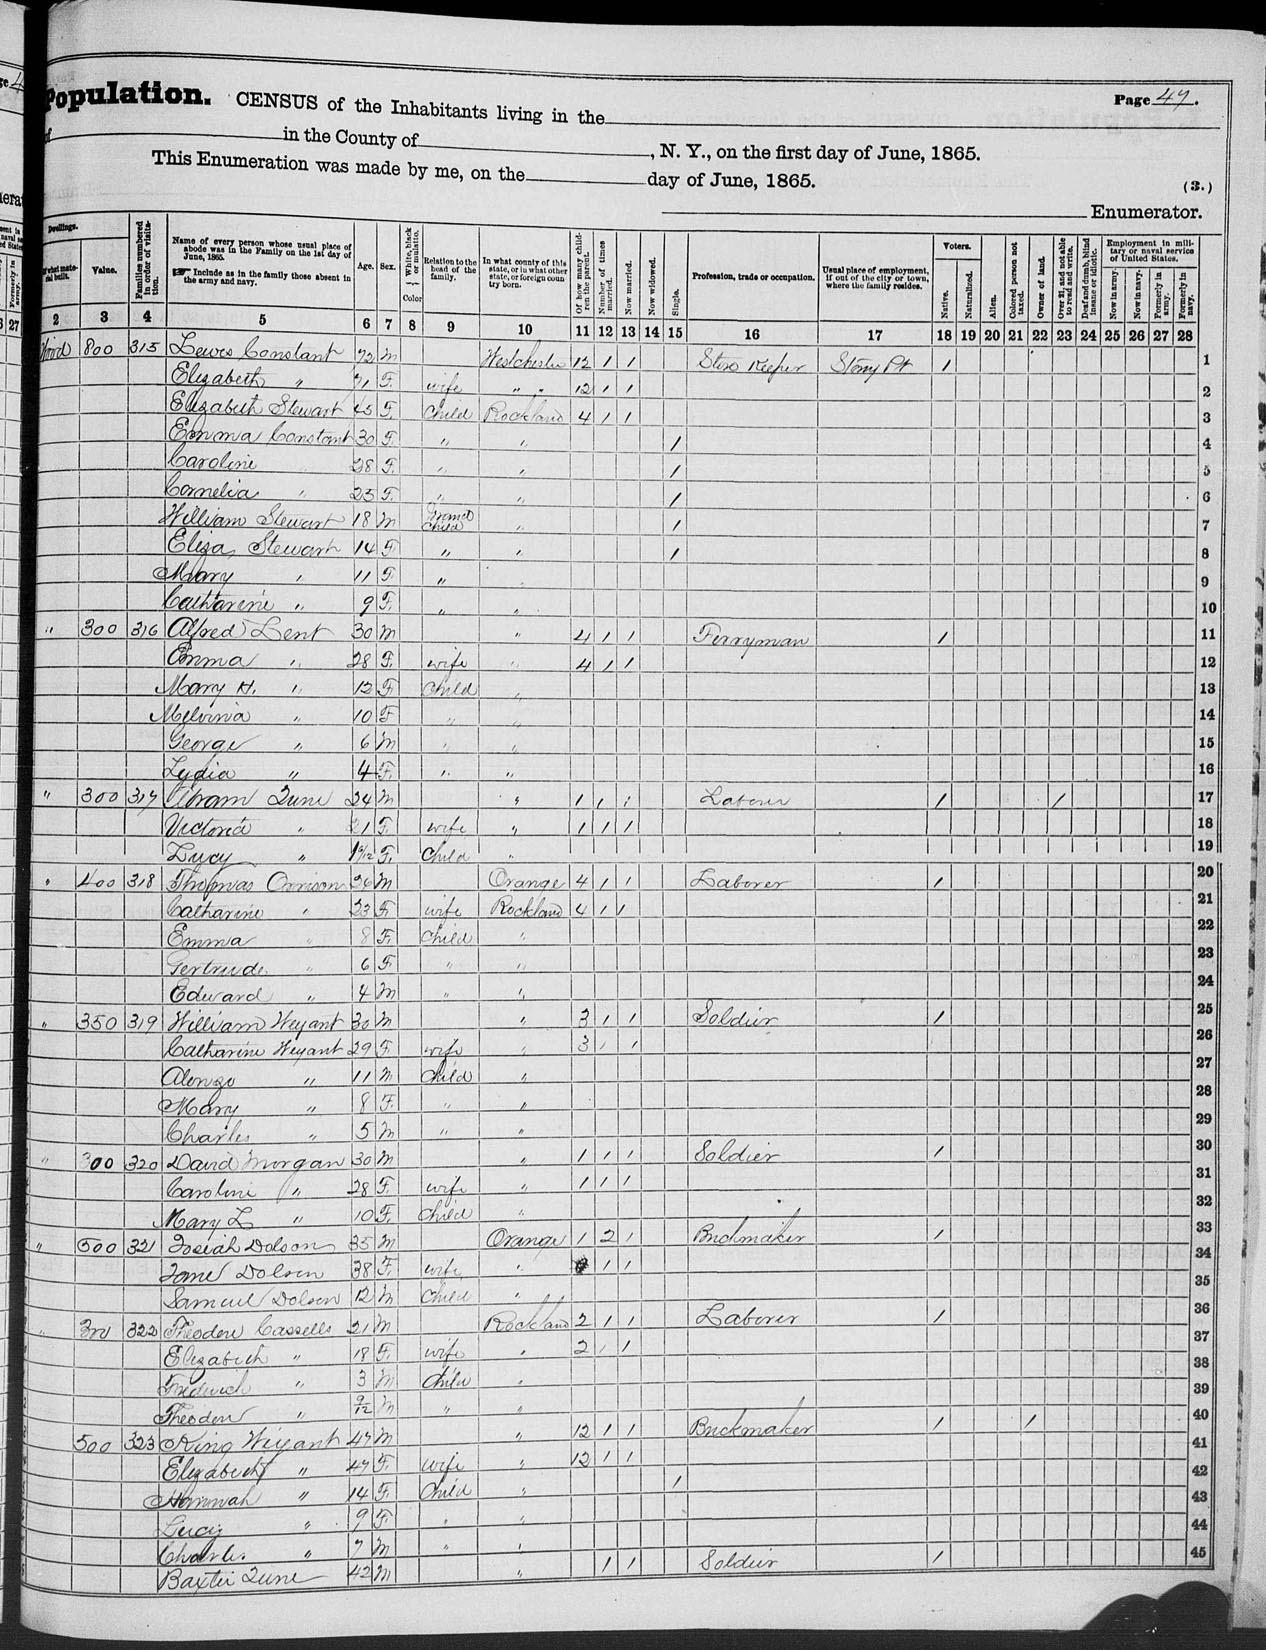 Population. CENSUS of the Inhabitants living in the Page 47.
of in the County of , N. Y., on the first day of June, 1865.
This Enumeration was made by me, on the day of June, 1865. (3.)
Enumerator.
Dwellings. Value. Families numbered in order of visitation. Name of every person whose usual place of abode was in the Family on the 1st day of June, 1865. Include as in the family those absent in the army and navy. Age. Sex. White, black or mulatto. Color Relation to the head of the family. In what county of this state, or in what other state, or foreign country born. Of how many children the parent. Number of times married. Now married. Now widowed. Single. Profession, trade or occupation. Usual place of employment, if out of the city or town, where the family resides. Voters. Native. Naturalized. Alien. Colored person not taxed. Owner of land. Over 21, and not able to read and write. Deaf and dumb, blind insane or idiotic. Employment in military or naval service of United States. Now in army. Now in navy. Formerly in army. Formerly in navy.
2 3 4 5 6 7 8 9 10 11 12 13 14 15 16 17 18 19 20 21 22 23 24 25 26 27 28
Wood 800 315 Lewis Constant 72 M Westchester 12 1 1 Store Keeper Stony Pt 1 1
Elizabeth " 71 F. wife " " 12 1 1 2
Elizabeth Stewart 45 F. Child Rockland 4 1 1 3
Emma Constant 30 F. " " 1 4
Caroline 28 F. " " 1 5
Cornelia " 23 F. " " 1 6
William Stewart 18 M Grand Child " 1 7
Eliza Stewart 14 F " " 1 8
Mary " 11 F. " " 9
Catharine " 9 F. " " 10
" 300 316 Alfred Lent 30 M " 4 1 1 Ferryman 1 11
Emma " 28 F. wife " 4 1 1 12
Mary H. " 12 F Child " 13
Melvina " 10 F " " 14
George " 6 M " " 15
Lydia " 4 F. " " 16
" 300 317 Abram June 24 M " 1 1 1 Laborer 1 1 17
Victoria " 21 F. wife " 1 1 1 18
Lucy " F. Child " 19
" 400 318 Thomas M Orange 4 1 1 Laborer 1 20
Catharine " 23 F wife Rockland 4 1 1 21
Emma " 8 F. Child " 22
Gertrude " 6 F " " 23
Edward " 4 M " " 24
" 350 319 William Weyant 30 M " 3 1 1 Soldier 1 25
Catharine Weyant 29 F. wife " 3 1 1 26
Alonzo " 11 M Child " 27
Mary " 8 F. " " 28
Charles " 5 M " " 29
" 300 320 David Morgan 30 M " 1 1 1 Soldier 1 30
Caroline " 28 F. wife " 1 1 1 31
Mary L " 10 F. Child " 32
" 500 321 Josiah Dolson 35 M Orange 1 2 1 Brickmaker 1 33
Jane Dolson 38 F. wife " 1 1 34
Samuel Dolson 12 M Child " 35
" 322 Theodore Cassells 21 M Rockland 2 1 1 Laborer 1 36
Elizabeth " 18 F. wife " 2 1 1 37
Fredrich " 3 M Child " 38
Theodore " 9/12 M " " 39
500 323 King Weyant 47 M " 12 1 1 Brickmaker 1 1 40
Elizabeth " 47 F. wife " 12 1 1 41
Hannah " 14 F. Child " 1 42
Lucy " 9 F " " 43
Charles " 7 M " " 44
Baxter June 42 M " 1 1 Soldier 1 45